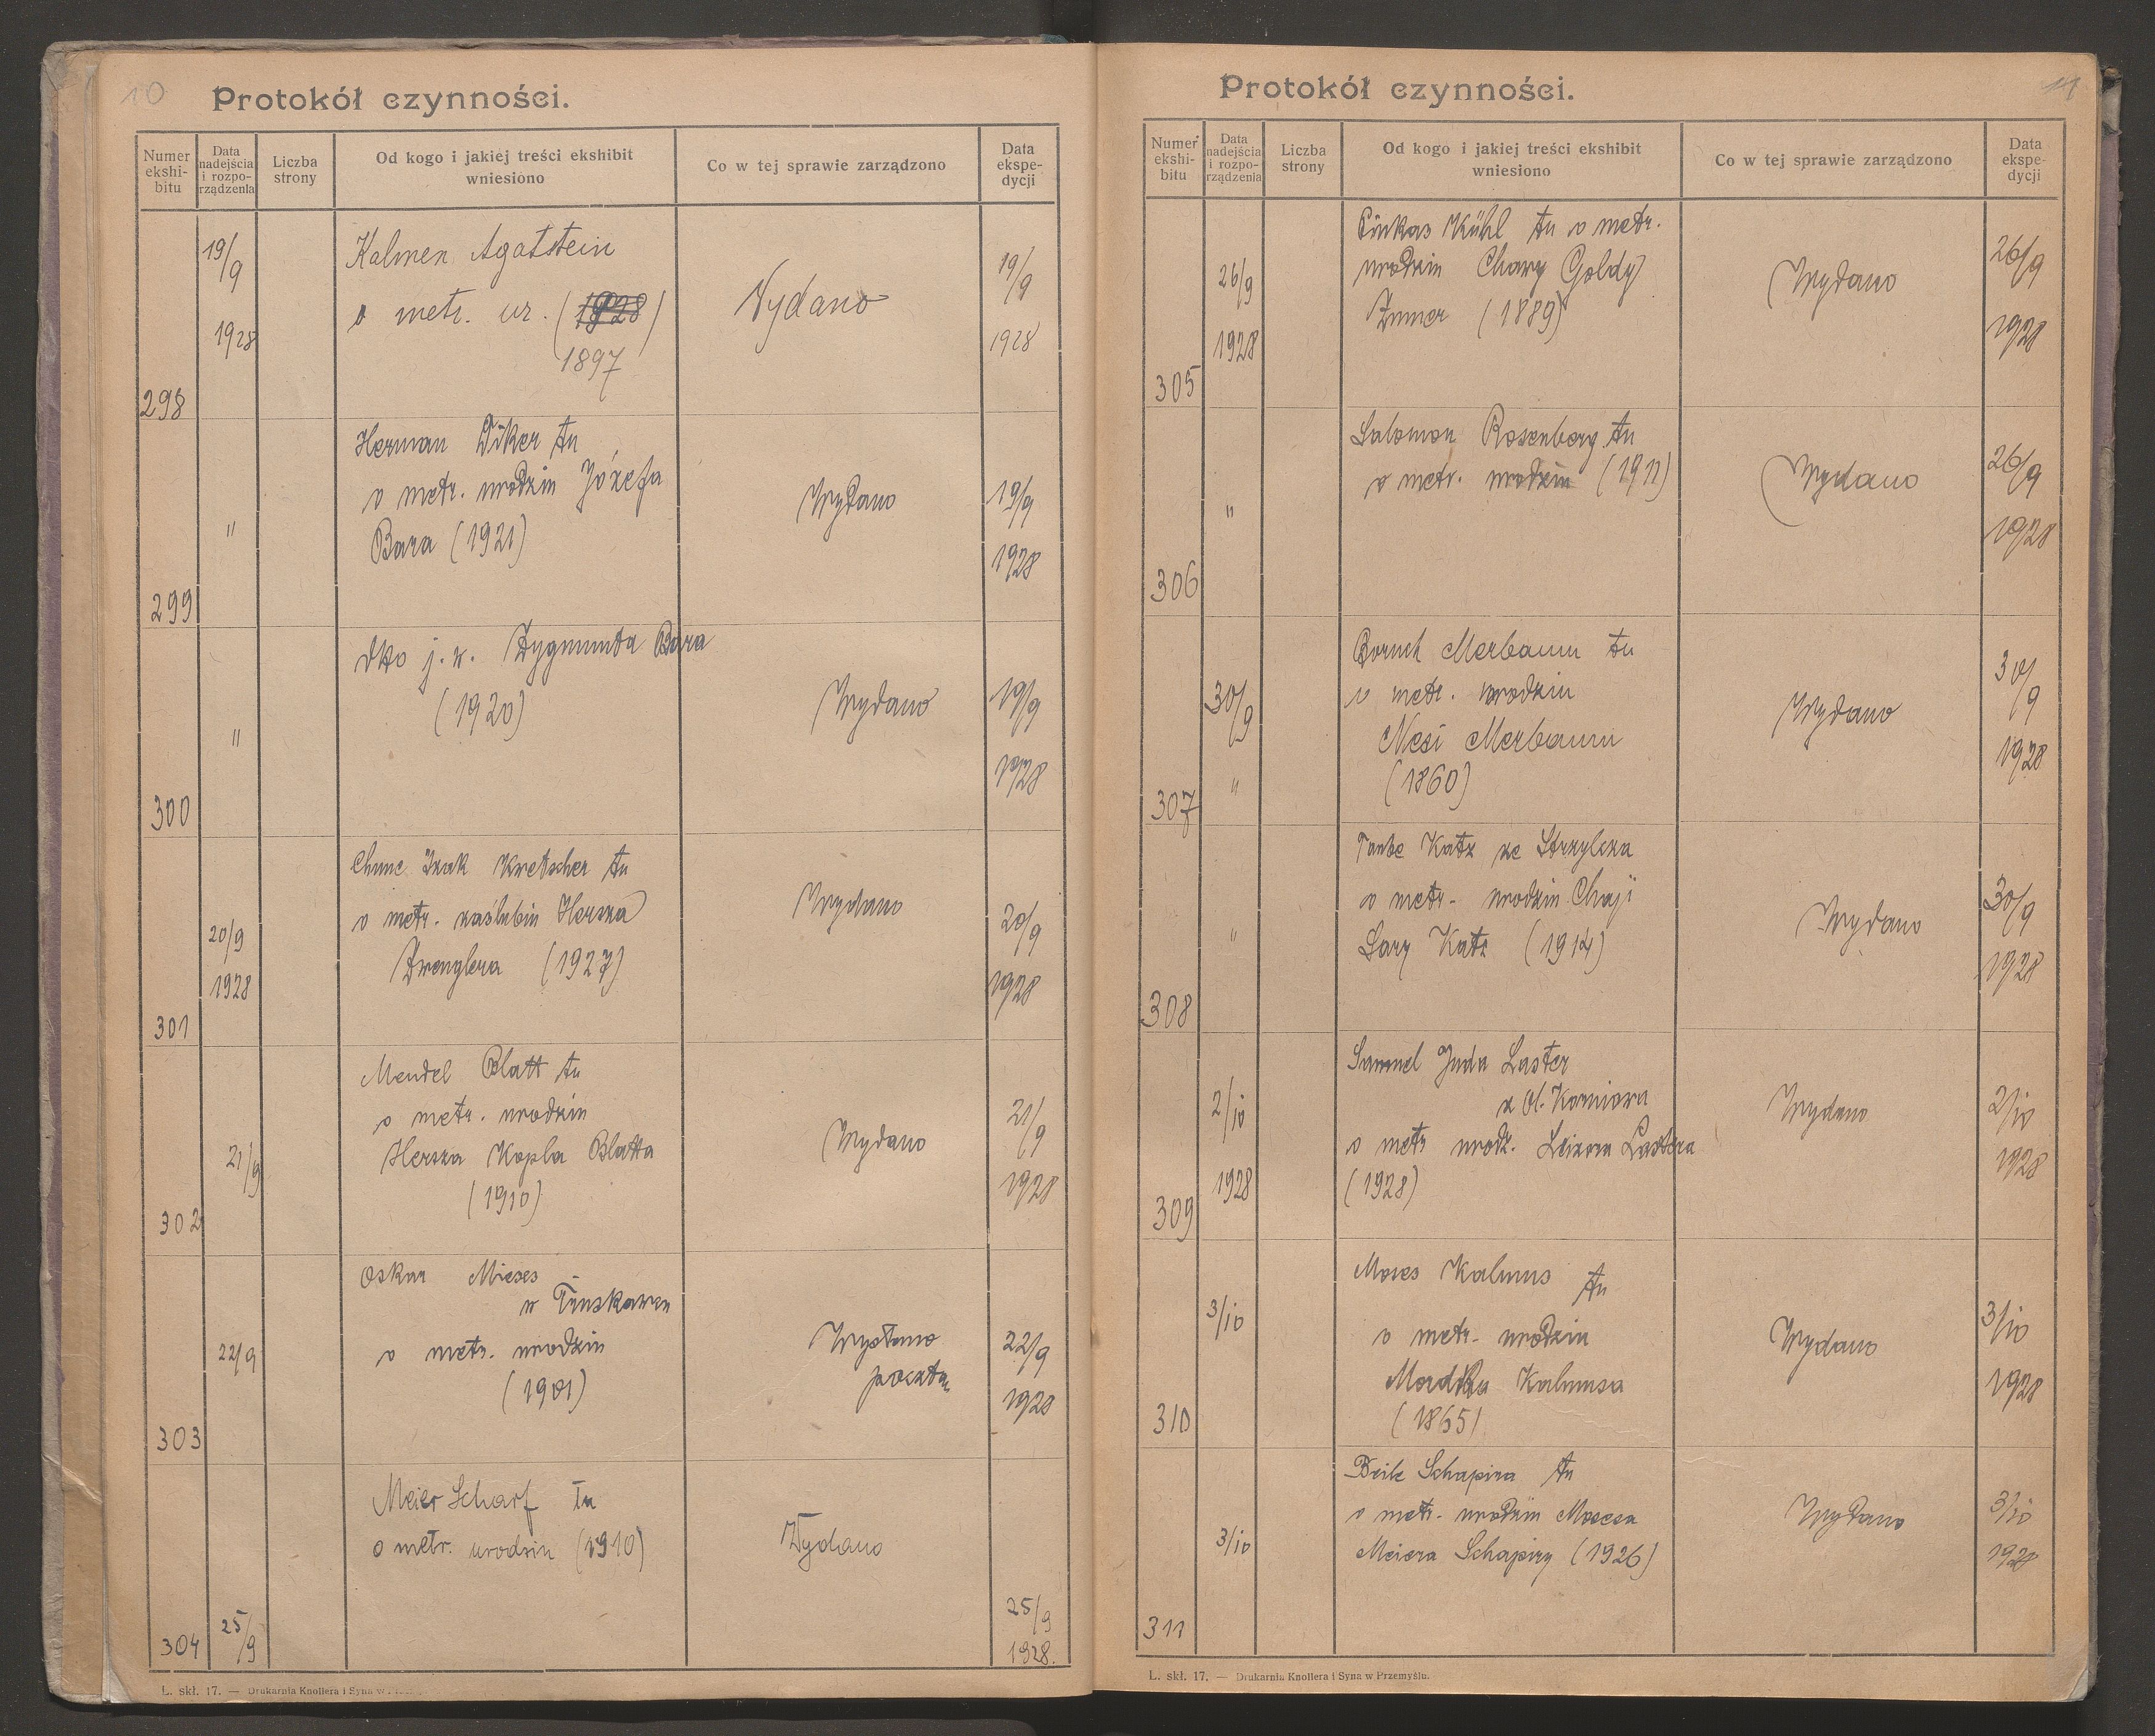 10
Protokół czynności.
Numer ekshi- bitu
Data nadejścia i rozpo- rządzenia
Liczba strony
Od kogo i jakiej treści ekshibit wniesiono
Co w tej sprawie zarządzono
Data ekspe- dycji
298
19/9
1928
Kalmen Agatstein
o metr. ur. (1928)
1897
Wydano
19/9
1928
299
"
Herman Diker tu
o metr. urodzin Józefa
Bara (1921)
Wydano
19/9
1928
300
"
dto j. w. Zygmunta Bara
(1920)
Wydano
19/9
1928
301
20/9
1928
Chune Izak Kretscher tu
o metr. zaślubin Hersza
Zwenglera (1927)
Wydano
20/9
1928
302
21/9
Mendel Blatt tu
o metr. urodzin
Hersza Kopla Blatta
(1910)
Wydano
21/9
1928
303
22/9
Oskar Mieses
w Truskawcu
o metr. urodzin
(1901)
Wysłano
pocztą
22/9
1928
304
25/9
Meier Scharf tu
o metr. urodzin (1910)
Wydano
25/9
1928.
L. skł. 17. — Drukarnia Knollera i Syna w
11
Protokół czynności.
Numer ekshi- bitu
Data nadejścia i rozpo- rządzenia
Liczba strony
Od kogo i jakiej treści ekshibit wniesiono
Co w tej sprawie zarządzono
Data ekspe- dycji
305
26/9
1928
Pinkas Kühl tu o metr.
urodzin Chary Goldy
(1889)
Wydano
26/9
1928
306
"
Salomon Rosenberg tu
o metr. urodzin (1911)
Wydano
26/9
1928
307
30/9
"
Boruch Merbaum tu
o metr. urodzin
Nesi Merbaum
(1860)
Wydano
30/9
1928
308
"
Taube Katz ze
o metr. urodzin Chaji
Sary Katz (1914)
Wydano
30/9
1928
309
2/10
1928
Samuel Juda Laster
z Ol. Korniowa
o metr urodz. Leizora Lastera
(1928)
Wydano
2/10
1928
310
3/10
Moses Kalmus tu
o metr. urodzin
Kalmusa
(1865)
Wydano
3/10
1928
311
3/10
Beile Schapira tu
o metr. urodzin Mosesa
Meiera Schapiry (1926)
Wydano
3/10
1928
L. skł. 17. — Drukarnia Knollera i Syna w Przemyślu.